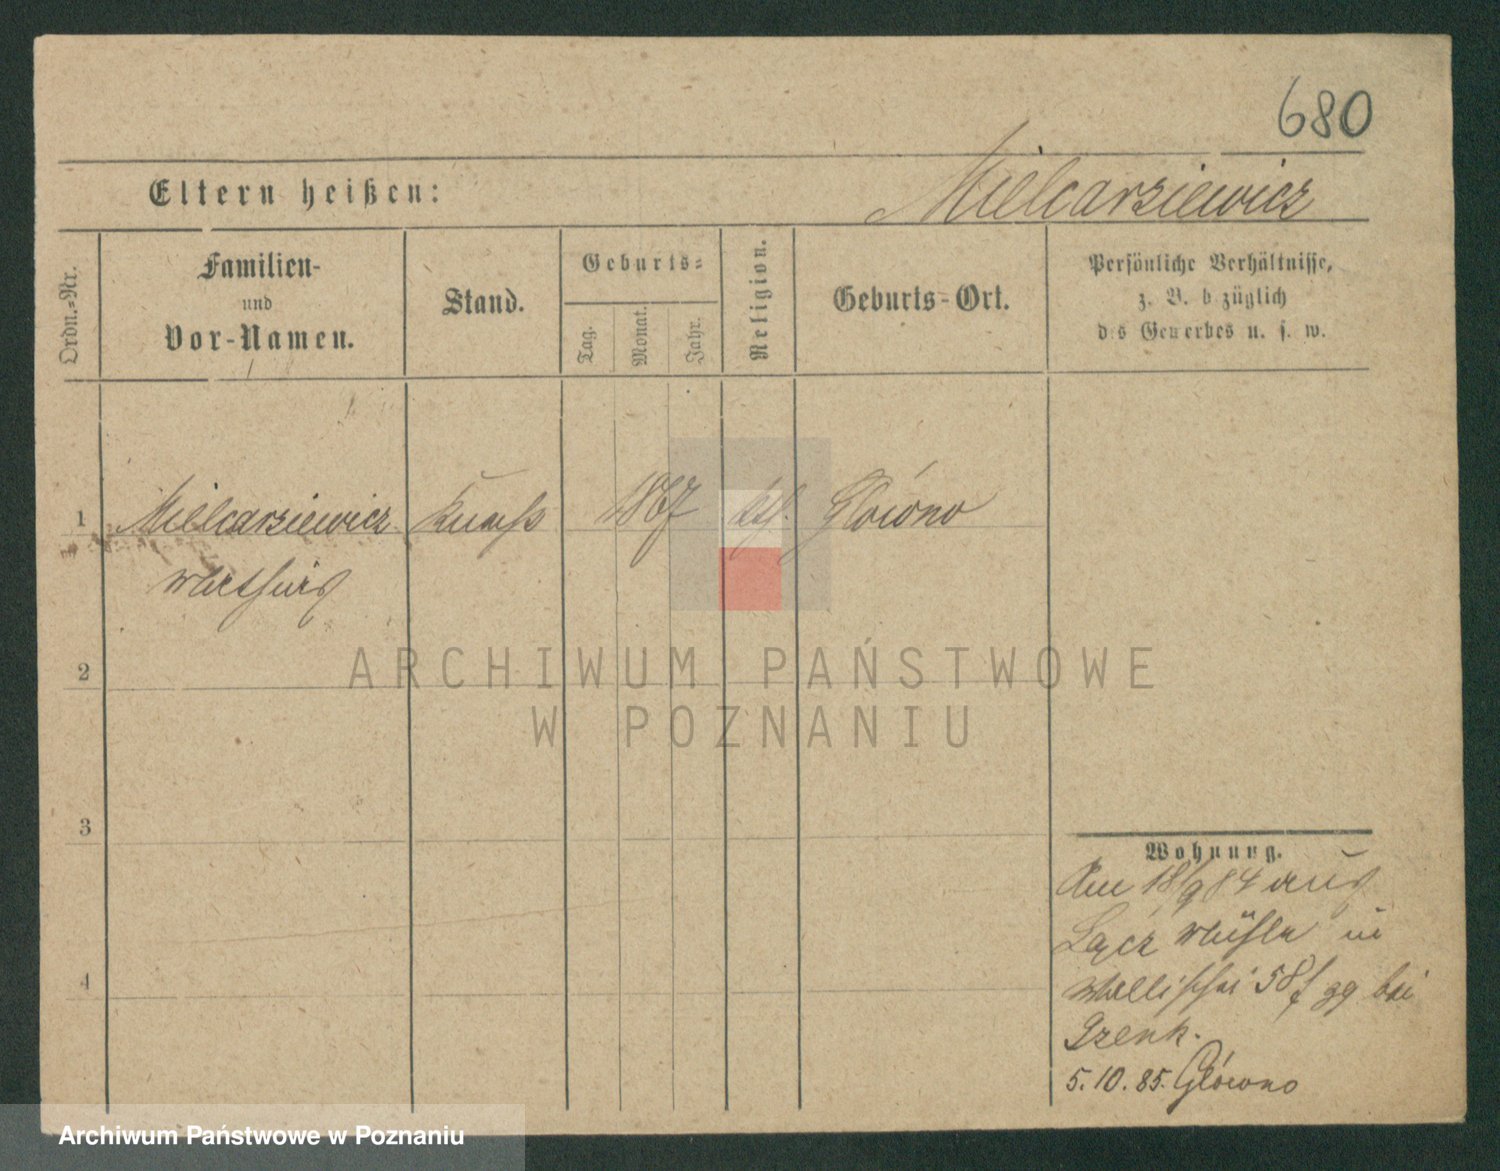 680
Eltern heißen:
Mielcarziewicz
Ordn.-Nr.
Familien-
und
Vor-Namen.
Stand.
Geburts-
Tag.
Monat.
Jahr.
Religion.
Geburts-Ort.
Persönliche Verhältnisse,
z. B. b züglich
des Gewerbes u. s. w.
1
Mielcarziewicz
Knecht
1867
kth.
Glówno
2
3
4
Wohnung.
Am 18/9 84 aus
Łącz Mühle in
Wallischei 58 f zg bei
Grenk.
5.10.85. Glówno
ARCHIWUM PAŃSTWOWE
W POZNANIU
Archiwum Państwowe w Poznaniu